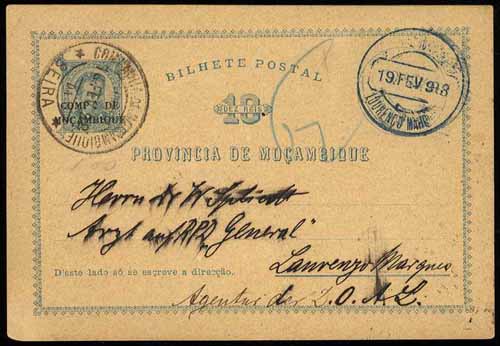 BILHETE POSTAL
COMPª DE
MOÇAMBIQUE
BEIRA
COMPANHIA DE MOÇAMBIQUE
10
DEZ REIS
19.FEV.98
LOURENÇO MARQ
PROVINCIA DE MOÇAMBIQUE
Herrn Dr W.
Arzt auf RPD "General"
Laurenzo Marques
D'este lado só se escreve a direcção.
Agentur der D. O. A. L.